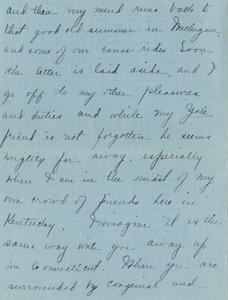 and then my mind runs back to
that good old summer in Michigan,
and some of our canoe rides. Soon
the letter is laid aside and I
go off to my other pleasures
and duties and while my Yale
friend is not forgotten he seems
mighty far away, especially
when I am in the midst of my
own crowd of friends here in
Kentucky. I imagine it is the
same way with you away up
in Connecticut. When you are
surrounded by congenial and